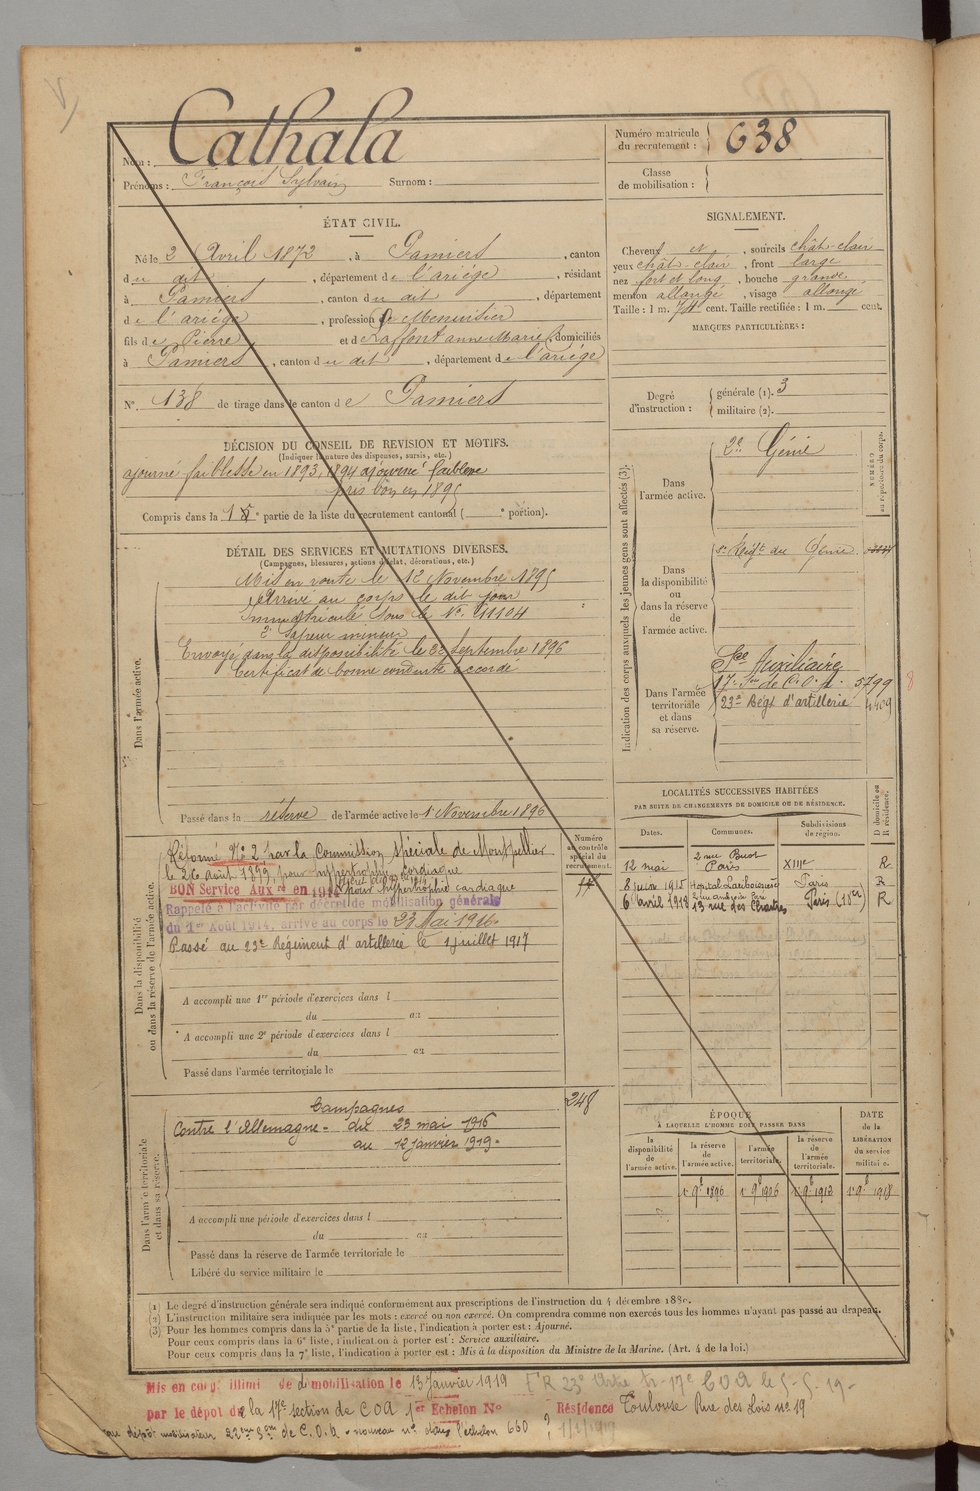 Nom : Cathala
Prénoms : François Sylvain Surnom :
Numéro matricule du recrutement : 638
Classe de mobilisation :
ÉTAT CIVIL.
Né le 2 Avril 1872, à Pamiers, canton
du dit, département de l'ariége, résidant
à Pamiers, canton du dit, département
de l'ariége, profession de Menuisier
fils de Pierre et de Laffont anne Marie, domiciliés
à Pamiers, canton du dit, département de l'ariége
N°. 138 de tirage dans le canton de Pamiers
SIGNALEMENT.
Cheveux et, sourcils chât-clair
yeux chât-clair, front large
nez fort et long, bouche grande
menton allongé, visage allongé
Taille : 1 m. cent. Taille rectifiée : 1 m. cent.
MARQUES PARTICULIÈRES :
Degré d'instruction :
générale (1). 3
militaire (2).
DÉCISION DU CONSEIL DE REVISION ET MOTIFS.
(Indiquer la nature des dispenses, sursis, etc.)
ajourné faiblesse en 1893, 1894 ajourné faiblesse
pris bon en 1895
Compris dans la 1e partie de la liste du recrutement cantonal ( e portion).
DÉTAIL DES SERVICES ET MUTATIONS DIVERSES.
(Campagnes, blessures, actions d'éclat, décorations, etc.)
Dans l'armée active.
Mis en route le 12 Novembre 1895
Arrivé au corps le dit jour
Immatriculé sous le N°. 11104
2e Sapeur mineur
Envoyé dans la disposibilité le 22 septembre 1896
Certificat de bonne conduite accordé
Passé dans la réserve de l'armée active le 1 Novembre 1896
Indication des corps auxquels les jeunes gens sont affectés (3).
NUMÉRO au répertoire du corps.
Dans l'armée active.
2e Génie
Dans la disponibilité ou dans la réserve de l'armée active.
Régt du Génie
Dans l'armée territoriale et dans sa réserve.
Sce Auxiliaire
17e Son de C.O.A. 5799
23e Régt d'artillerie 4409
8
LOCALITÉS SUCCESSIVES HABITÉES
PAR SUITE DE CHANGEMENTS DE DOMICILE OU DE RÉSIDENCE.
Dates. Communes. Subdivisions de région. D domicile ou R résidence.
12 mai 2 rue Buot Paris XIIIe R
8 juin 1915 Hopital Lariboisière Paris R
6 avril 1918 13 rue des Chartres Paris (18e) R
Numéro au contrôle spécial du recrutement.
Dans la disponibilité ou dans la réserve de l'armée active.
Réformé N° 2 par la Commission spéciale de Montpellier
le 26 Août 1899, pour hypertrophie cardiaque
BON Service Auxre en 1914 pour hypertrophie cardiaque
Rappelé à l'activité par décret de mobilisation générale
du 1er Août 1914, arrivé au corps le 23 Mai 1916
Passé au 23e Régiment d'artillerie le 1 juillet 1917
A accompli une 1re période d'exercices dans l
du au
A accompli une 2e période d'exercices dans l
du au
Passé dans l'armée territoriale le
Dans l'armée territoriale et dans sa réserve.
248
Campagnes
Contre l'Allemagne - du 23 mai 1916
au 12 janvier 1919 -
A accompli une période d'exercices dans l
du au
Passé dans la réserve de l'armée territoriale le
Libéré du service militaire le
ÉPOQUE
À LAQUELLE L'HOMME DOIT PASSER DANS
la disponibilité de l'armée active.
la réserve de l'armée active.
l'armée territoriale.
la réserve de l'armée territoriale.
DATE de la LIBÉRATION du service militaire.
1er 9bre 1896 1er 9bre 1906 1er 9bre 1912 1er 9bre 1918
(1) Le degré d'instruction générale sera indiqué conformément aux prescriptions de l'instruction du 4 décembre 1889.
(2) L'instruction militaire sera indiquée par les mots : exercé ou non exercé. On comprendra comme non exercés tous les hommes n'ayant pas passé au drapeau.
(3) Pour les hommes compris dans la 5e partie de la liste, l'indication à porter est : Ajourné.
Pour ceux compris dans la 6e liste, l'indication à porter est : Service auxiliaire.
Pour ceux compris dans la 7e liste, l'indication à porter est : Mis à la disposition du Ministre de la Marine. (Art. 4 de la loi.)
Mis en congé illimité de démobilisation le 13 Janvier 1919
par le dépôt de la 17e section de COA 1er Echelon N° Résidence Toulouse Rue des Lois n° 19